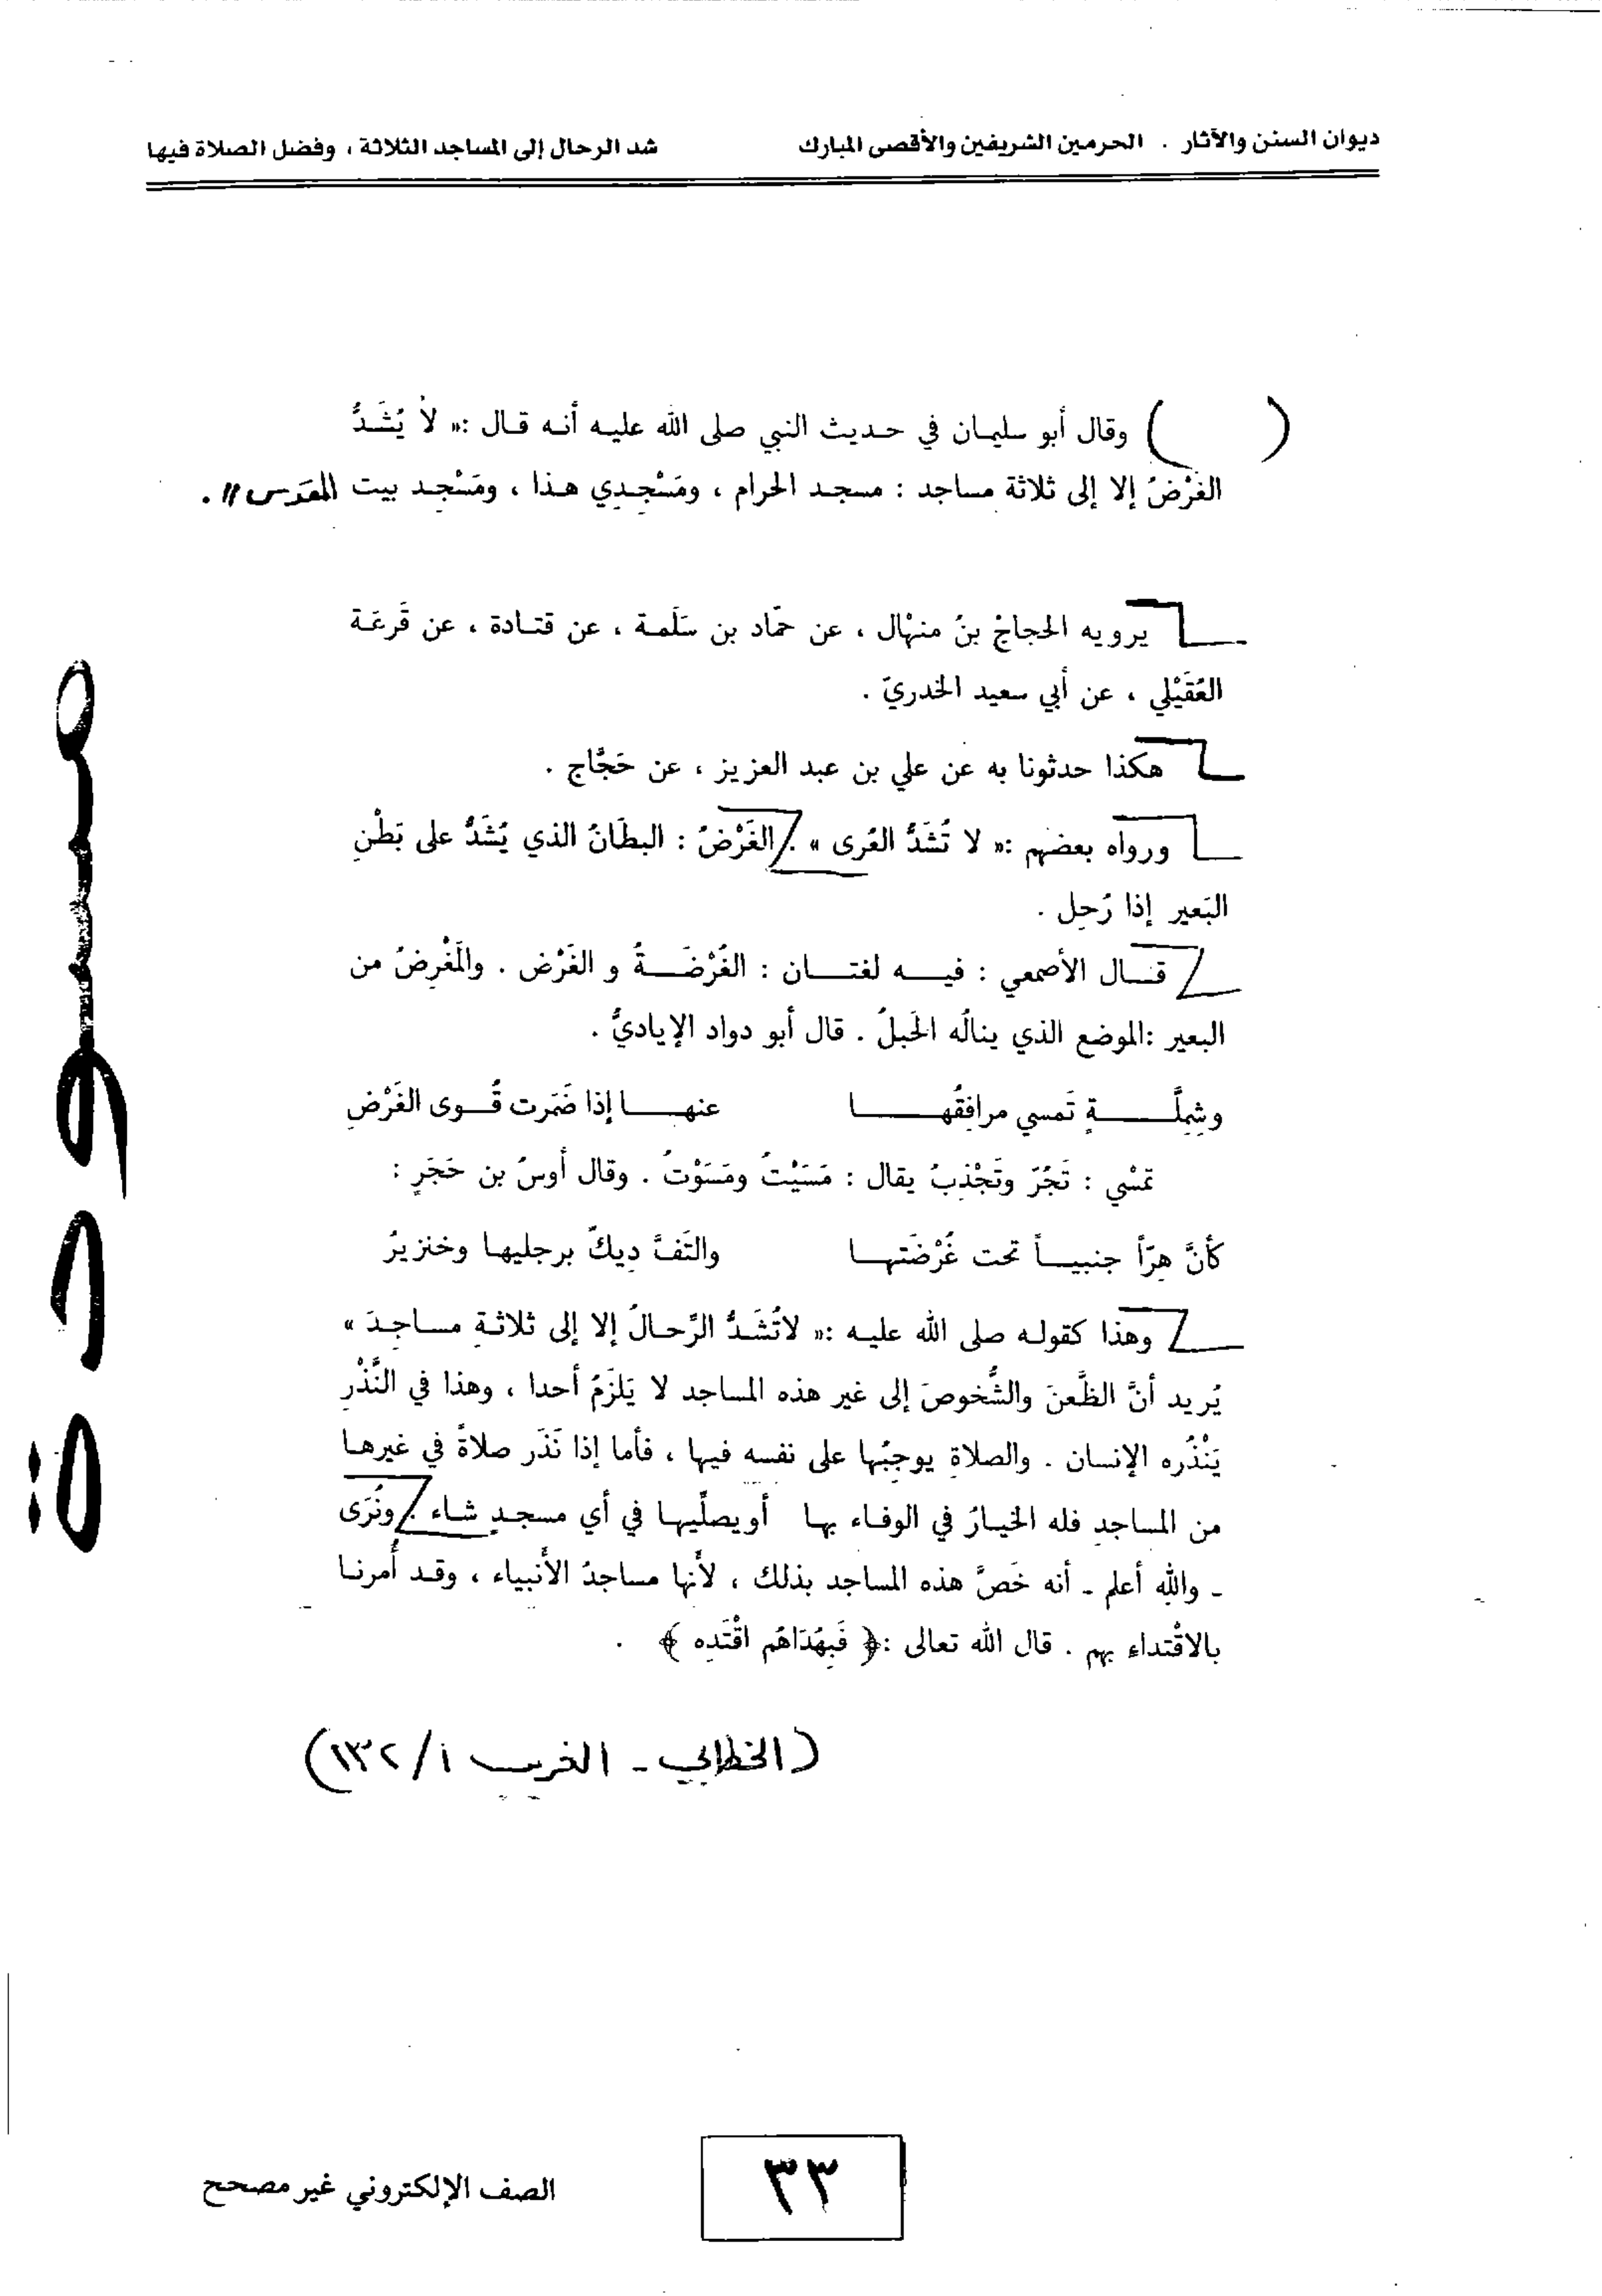 ديوان السنن والآثار . الحرمين الشريفين والأقصى المبارك شد الرحال إلى المساجد الثلاثة ، وفضل الصلاة فيها
( ) وقال أبو سليمان في حديث النبي صلى الله عليه أنه قال :« لاَ يُشَدُّ
الغَرْضُ إلا إلى ثلاثة مساجد : مسجد الحرام ، ومَسْجِدِي هذا ، ومَسْجِد بيت المقدس » .
يرويه الحجاجُ بنُ منهْال ، عن حمّاد بن سَلَمة ، عن قتادة ، عن قَزعَة
العُقَيْلي ، عن أبي سعيد الخدريّ .
هكذا حدثونا به عن علي بن عبد العزيز ، عن حَجَّاج .
ورواه بعضهم :« لا تُشَدُّ العُرى » . الغَرْضُ : البطَانُ الذي يُشَدُّ على بَطْنِ
البَعير إذا رُحِل .
قال الأصمعي : فيه لغتان : الغُرْضَةُ و الغَرْض . والمَغْرِضُ من
البعير :الموضع الذي ينالُه الحَبلُ . قال أبو دواد الإياديُّ .
وشِمِلَّةٍ تَمسي مرافِقُها عنها إذا ضَمَرت قُوى الغَرْضِ
تمسْي : تَجُرّ وتَجْذِبُ يقال : مَسَيْتُ ومَسَوْتُ . وقال أوسُ بن حَجَرٍ :
كأنَّ هِرّاً جنبيـاً تحت غُرْضَتها والتَفَّ دِيكٌ برجليها وخنزيرُ
وهذا كقوله صلى الله عليه :« لاتُشَدُّ الرِّحالُ إلا إلى ثلاثةِ مساجِدَ »
يُريد أنَّ الظَّعنَ والشُّخوصَ إلى غير هذه المساجد لا يَلزَمُ أحدا ، وهذا في النَّذْرِ
يَنْذُره الإنسان . والصلاةِ يوجبُها على نفسه فيها ، فأما إذا نَذَر صلاةً في غيرها
من المساجدِ فله الخيارُ في الوفاء بها أويصلِّيها في أي مسجدٍ شاء . ونُرَى
ـ والله أعلم ـ أنه خَصَّ هذه المساجد بذلك ، لأنها مساجدُ الأنبياء ، وقد أُمرنا
بالاقْتداءِ بهم . قال الله تعالى :﴿ فَبِهُدَاهُم اقْتَدِه ﴾ .
(الخطابي ـ الغريب ١/ ١٣٢)
مسودة
٣٣
الصف الإلكتروني غير مصحح